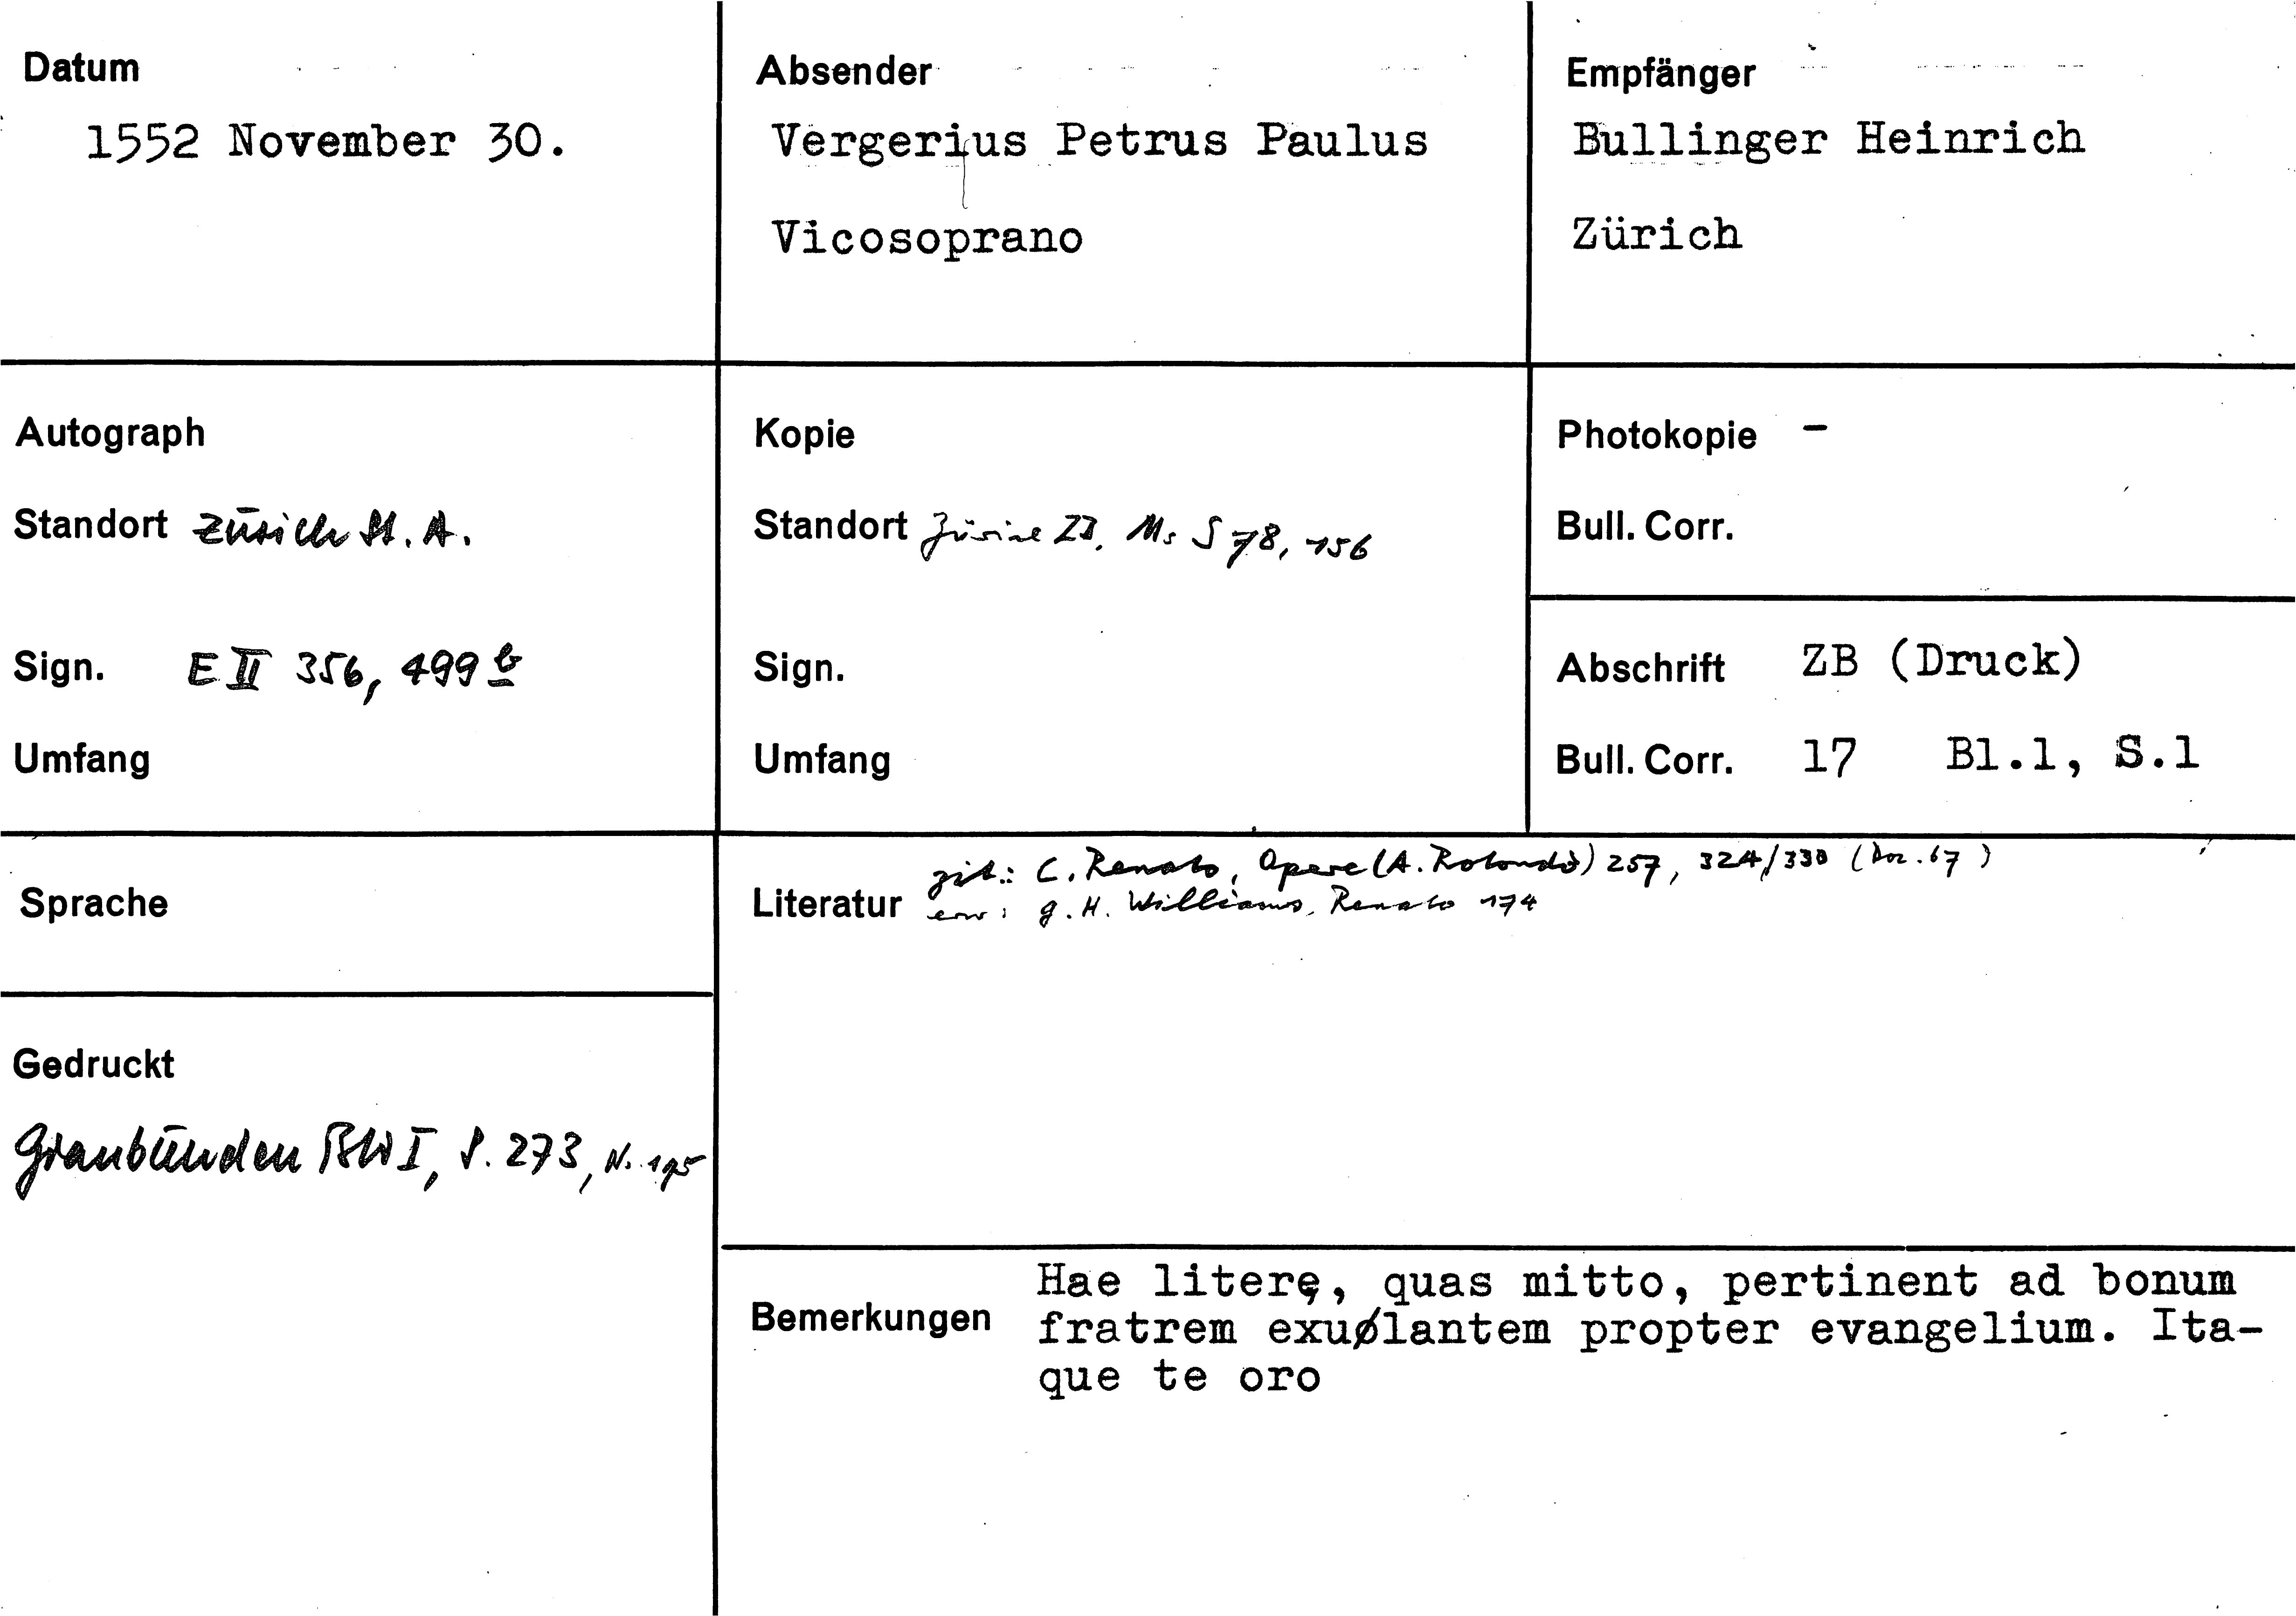 Datum
1552 November 30.
Absender
Vergerius Petrus Paulus
Vicosoprano
Empfänger
Bullinger Heinrich
Zürich
Autograph
Standort Zürich St. A.
Sign. E II 356, 499 b
Umfang
Kopie
Standort Zürich ZB, Ms S 78, 156
Sign.
Umfang
Photokopie -
Bull. Corr.
Abschrift ZB (Druck)
Bull. Corr. 17 Bl.1, S.1
Sprache
Gedruckt
Graubünden BW I, S. 273, Nr. 195
zit.: C. Renato, Opere (A. Rotondò) 257, 324/330 (Doc. 67)
Literatur erw: G. H. Williams, Renato 174
Bemerkungen
Hae literę, quas mitto, pertinent ad bonum
fratrem exuølantem propter evangelium. Ita-
que te oro